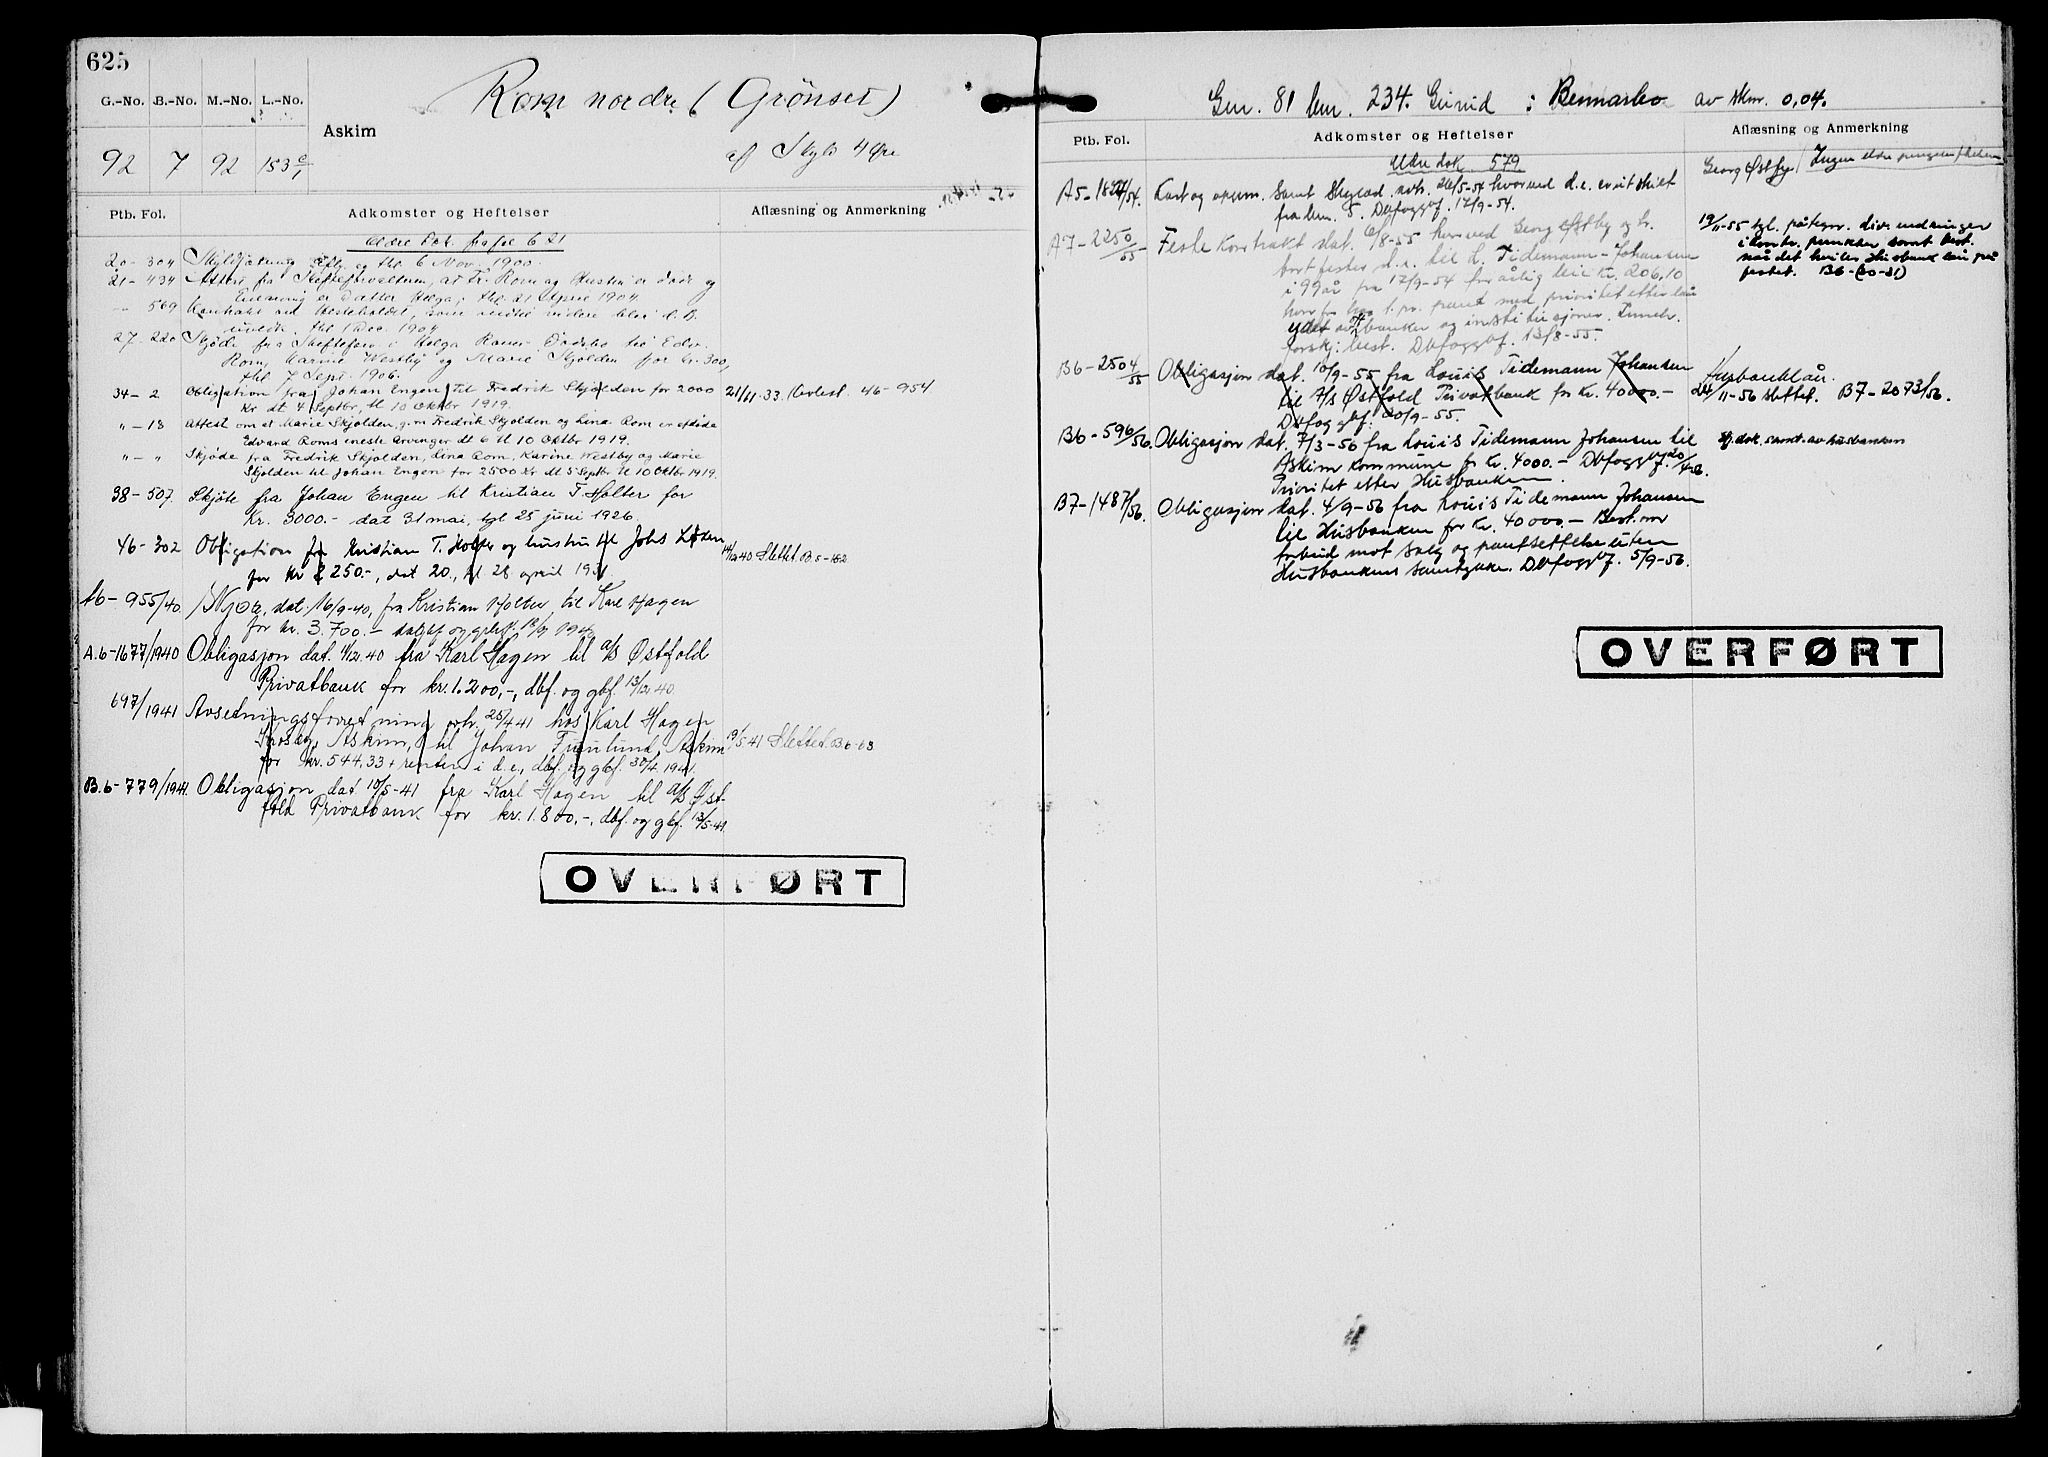 625
G.-No. B.-No. M.-No. L.-No.
Askim
Rom nordre (Grönset)
af Skyld 4 Øre
92 7 92 153 c/1
Ptb. Fol. Adkomster og Heftelser Aflæsning og Anmerkning
Ældre Dok. fra fol 621
20-304 Skyldfatning thl. 6 Nov. 1900.
21-434 Attest fra Skifteforvaltern, at Fr. Rom og Hustru er døde og
Enearving er Datter Helga; thl. 21 April 1904.
- 569 Kontrakt ved
thl 1 Dec. 1904
27-220 Skjöde fra Helga Roms Dödsbo til Edv.
Rom, Karine Westby og Marie Skjolden for kr. 300,
thl 7 Sept. 1906.
34-2 Obligation fra Johan Engen til Fredrik Skjolden for 2000
Kr dt 4 Septbr, tl 10 Oktbr 1919.
21/11.33. Kvitert 46-954
"-18 Attest om at Marie Skjolden, g.m Fredrik Skjolden og Lina Rom er afdøde
Edvard Roms eneste Arvinger dt 6 tl 10 Oktbr 1919.
"-" Skjøde fra Fredrik Skjolden, Lina Rom, Karine Westby og Marie
Skjolden til Johan Engen for 2500 Kr dt 5 Septbr tl 10 Oktbr 1919.
38-507. Skjöte fra Johan Engen til Kristian T. Holter for
Kr. 3000.- dat 31 mai, tgl 25 juni 1926.
46-302 Obligation fra Kristian T. Holter og hustru til Johs Löken
for kr 2250.-, dat 20., tl 28 april 1931.
14/12 40 Slettet B.5-162
A6-955/40 Skjöte, dat. 16/9-40, fra Kristian Holter til Karl Hagen
for kr. 3.700.- dagbf og gbf. 18/9 1940
A.6-1677/1940 Obligasjon dat. 11/12.40 fra Karl Hagen til A/S Østfold
Privatbank for kr. 1.200,-, dbf. og gbf. 13/12 40.
697/1941 Avsetningsforretning avh. 25/4 41 hos Karl Hagen
Askim, til Johan Furulund, Askim
for kr. 544,33 + renter i d.e., dbf. og gbf. 30/4 1941.
19/5-41 Slettet B6-63
B.6-779/1941. Obligasjon dat 10/5-41 fra Karl Hagen til A/S Øst-
fold Privatbank for kr. 1.800,-, dbf. og gbf. 13/5-41.
OVERFØRT
Gnr. 81 bnr. 234. Grind : Bennarbo av skm. 0,04.
Ptb. Fol. Adkomster og Heftelser Aflæsning og Anmerkning
Eldre dok. 579
Georg Østby / Ingen eldre pengeheftelser
A5-1824/54. Kart og oppm. samt Skyldd. avh. 26/5-54 hvorved d.e. er utskilt
fra bnr. 5. Dbfoggbf. 17/9-54.
A7-2250/55 - Feste Kontrakt dat. 6/8-55 hvorved Georg Østby og h.
bortfester d.e. til L. Tidemann-Johansen
i 99 år fra 17/9-54 for årlig leie kr. 206,10
hvorfor 1. pr. pant med prioritet etter lån
ydet av banker og institusjoner.
forskj. best. Dbfoggbf. 13/8-55.
19/11-55 tgl. påtegn. div. endringer
i kontr. punkter samt best.
når det hviler Husbank lån på
festet. B6-(30-31)
B6-2504/55 Obligasjon dat. 10/9-55 fra Louis Tidemann Johansen
til A/S Østfold Privatbank for kr. 40000.-
Dbfoggbf. 20/9-55.
Husbanklån.
24/11-56 slettet. B7-2073/56.
B6-596/56. Obligasjon dat. 7/3-56 fra Louis Tidemann Johansen til
Askim Kommune for kr. 4000.- Dbfoggbf.
Prioritet etter Husbanken.
B7-1487/56. Obligasjon dat. 4/9-56 fra Louis Tidemann Johansen
til Husbanken for kr. 40000.- Best. om
forbud mot salg og pantsettelse uten
Husbankens samtykke. Dbfoggbf. 5/9-56.
OVERFØRT